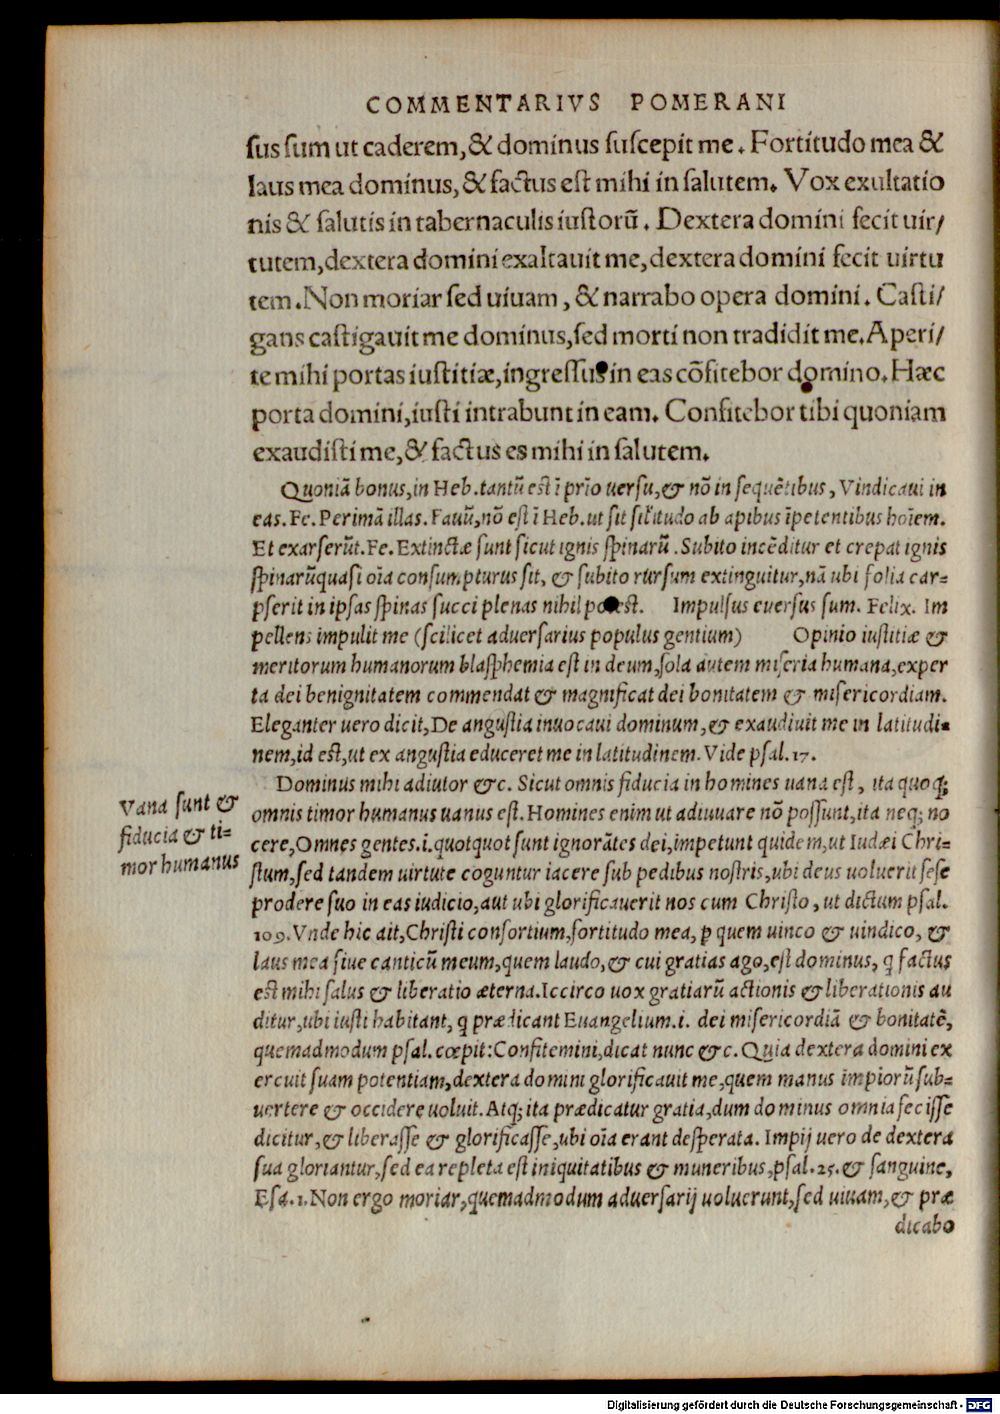 COMMENTARIVS POMERANI
sus sum ut caderem, & dominus suscepit me. Fortitudo mea &
laus mea dominus, & factus est mihi in salutem. Vox exultatio
nis & salutis in tabernaculis iustorū. Dextera domini fecit uir/
tutem, dextera domini exaltauit me, dextera domini fecit uirtu
tem. Non moriar sed uiuam, & narrabo opera domini. Casti/
gans castigauit me dominus, sed morti non tradidit me. Aperi/
te mihi portas iustitiæ, ingressus in eas cōfitebor domino. Hæc
porta domini, iusti intrabunt in eam. Confitebor tibi quoniam
exaudisti me, & factus es mihi in salutem.
Quoniā bonus, in Heb. tantū est ī prīo uersu, & nō in sequētibus, Vindicaui in
eas. Fe. Perimā illas. Fauū, nō est ī Heb. ut sit sil'itudo ab apibus īpetentibus hoīem.
Et exarserūt. Fe. Extinctæ sunt sicut ignis spinarū. Subito incēditur et crepat ignis
spinarū quasi oīa consumpturus sit, & subito rursum extinguitur, nā ubi folia car=
pserit in ipsas spinas succi plenas nihil potest. Impulsus euersus sum. Felix. Im
pellens impulit me (scilicet aduersarius populus gentium) Opinio iustitiæ &
meritorum humanorum blasphemia est in deum, sola autem miseria humana, exper
ta dei benignitatem commendat & magnificat dei bonitatem & misericordiam.
Eleganter uero dicit, De angustia inuocaui dominum, & exaudiuit me in latitudi=
nem, id est, ut ex angustia educeret me in latitudinem. Vide psal. 17.
Dominus mihi adiutor &c. Sicut omnis fiducia in homines uana est, ita quoq;
omnis timor humanus uanus est. Homines enim ut adiuuare nō possunt, ita neq; no
cere, Omnes gentes .i. quotquot sunt ignorātes dei, impetunt quidem, ut Iudæi Chri=
stum, sed tandem uirtute coguntur iacere sub pedibus nostris, ubi deus uoluerit sese
prodere suo in eas iudicio, aut ubi glorificauerit nos cum Christo, ut dictum psal.
109. Vnde hic ait, Christi consortium, fortitudo mea, p quem uinco & uindico, &
laus mea siue canticū meum, quem laudo, & cui gratias ago, est dominus, q factus
est mihi salus & liberatio æterna. Iccirco uox gratiarū actionis & liberationis au
ditur, ubi iusti habitant, q prædicant Euangelium .i. dei misericordiā & bonitatē,
quemadmodum psal. cœpit: Confitemini, dicat nunc &c. Quia dextera domini ex
ercuit suam potentiam, dextera domini glorificauit me, quem manus impiorū sub=
uertere & occidere uoluit. Atq; ita prædicatur gratia, dum dominus omnia fecisse
dicitur, & liberasse & glorificasse, ubi oīa erant desperata. Impij uero de dextera
sua gloriantur, sed ea repleta est iniquitatibus & muneribus, psal. 25. & sanguine,
Esa. 1. Non ergo moriar, quemadmodum aduersarij uoluerunt, sed uiuam, & præ
dicabo
Vana sunt &
fiducia & ti=
mor humanus
Digitalisierung gefördert durch die Deutsche Forschungsgemeinschaft - DFG